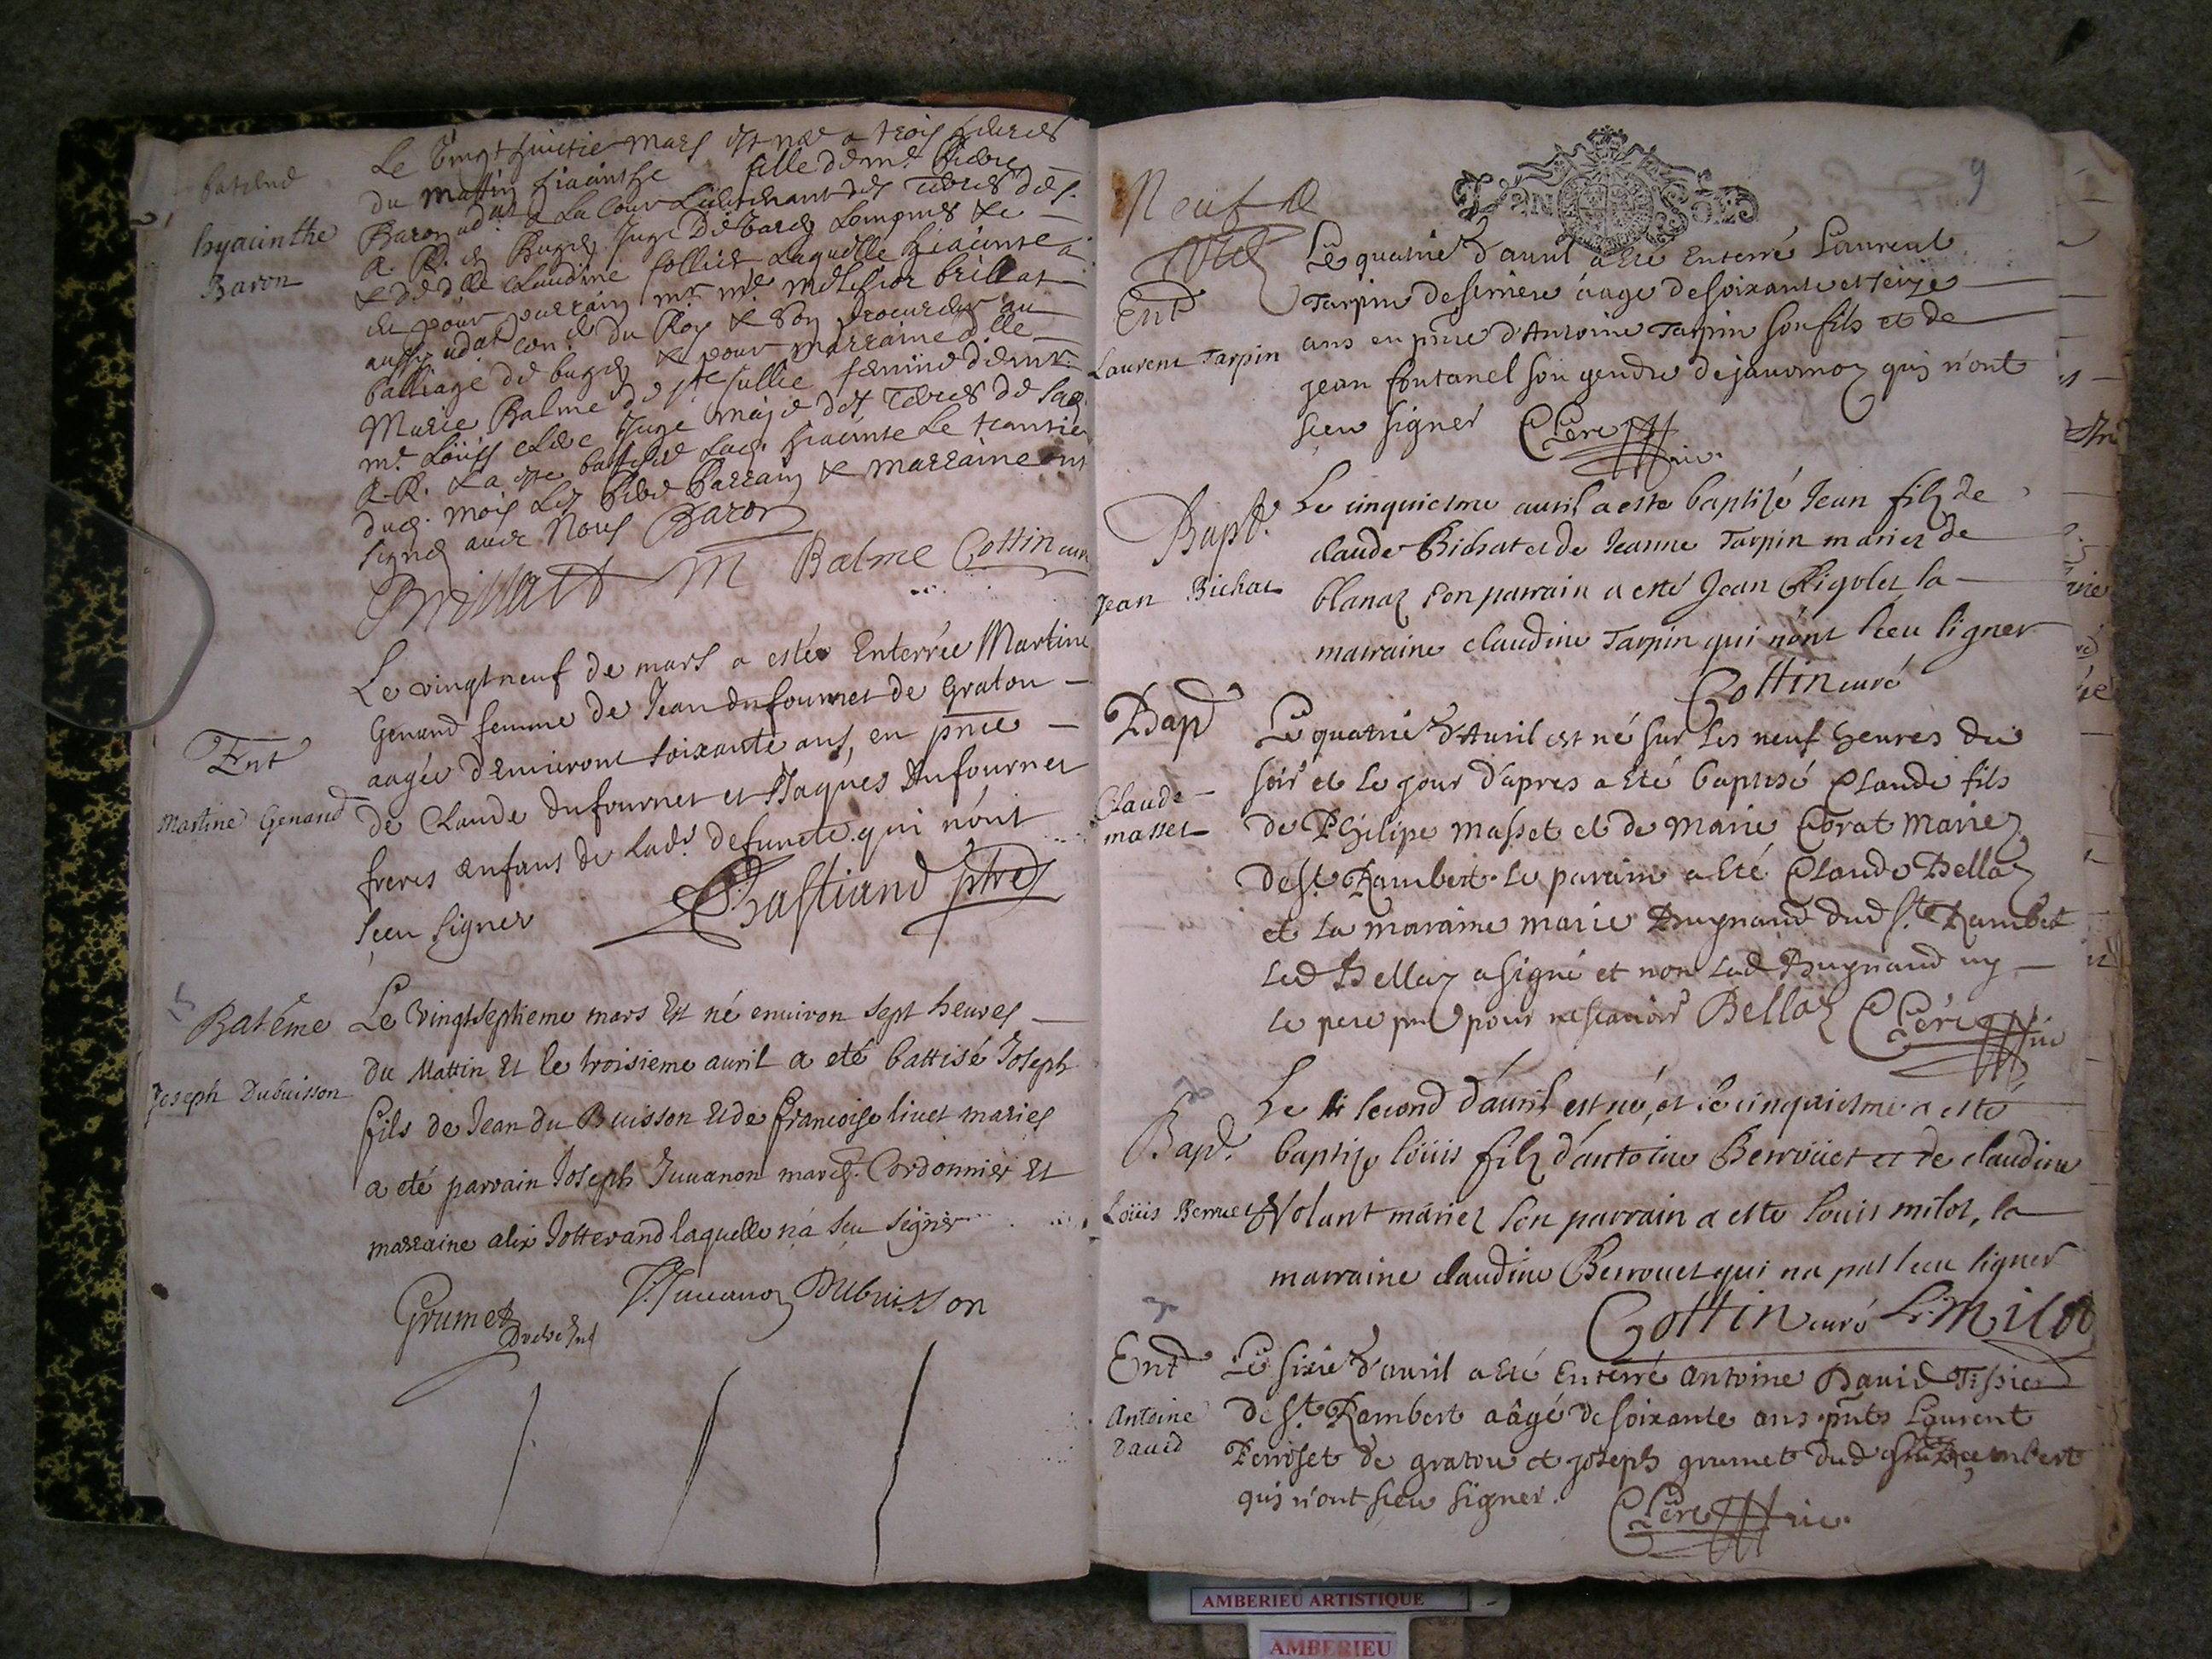 batême
hyacinthe
Baron
Le vingt huictie mars est née a trois heures
du mattin hiacinthe fille de mr. Pierre
Baron adat a la cour Lieutenant des Terres de S.
A. R. en Bugey Juge de
& de dlle Claudine follier Laquelle hiacinte a
eu pour parrain mr. me. melchior brillat
aussy adat con. du Roy & son procureur au
balliage de bugey & pour marraine dlle
Marie Balme de ste Jullie femme de mr.
me. Louis Juge maje des Terres de Sad.
A. R. La este battisée lad. hiacinte Le trantie
dud. mois Les Pere Parrain & marraine ont
signé avec Nous Baron
Brillatt M Balme Cottin curé
Ent
Martine Genand
Le vingt neuf de mars a estée Enterrée Martine
Genand femme de Jean dufournet de Graton
aagée d'environt soixante ans, en pnce
de Claude Dufournet et Jaques Dufournet
freres enfans de Lade. defuncte qui n'ont
sceu signer Bastiand ptre
Batême
Joseph Dubuisson
Le vingtseptieme mars Est né environ sept heures
du Mattin Et le troisieme avril a eté battisé Joseph
fils de Jean du Buisson Et de francoise livet mariés
a eté parrain Joseph Juvanon march. Cordonnier Et
marraine alix Jotterand laquelle n'a sçu signer
Grumet J. Juvanon Dubuisson
9
Neuf
GEN SOLS
Ent
Laurent Tarpin
Le quatrie d'avril a Eté Enterré Laurent
Tarpin de âage de soixante et seize
ans en pnce d'Antoine Tarpin son fils et de
jean fontanel son gendre de javornoz quj n'ont
sceu signer Clerc vic.
Bapt.
Jean Bichat
Le cinquiesme avril a este baptizé Jean filz de
claude Bichat et de Jeanne Tarpin mariez de
blanaz son parrain a esté Jean Rigolet la
marraine claudine Tarpin qui n'ont sceu signer
Cottin curé
Bap
Claude
masset
Le quatrie d'Avril est né sur les neuf heures du
soir et le jour d'apres a Eté baptisé Claude fils
de Philipe masset et de marie Corat mariez
de St. Rambert. le parain a Eté Claude Bellaz
et la maraine marie Bugnand dud St. Rambert
led Bellaz a signé et non lad Bugnand ny
le pere pnt pour ne scavoir Bellaz Clerc vic
Bap.
Loüis Berrouet
Le second d'avril est né, et le cinquiesme a esté
baptizé loüis filz d'antoine Berroüet et de claudine
Volant mariez son parrain a esté louis milot, la
marraine claudine Berrouet qui na pas sceu signer
Cottin curé L. Milot
Ent
Antoine
David
Le sixie d'avril a Eté Enterré Antoine David Tissier
de St. Rambert aâgé de soixante ans pnts Laurent
Perroset de gratou et joseph grumet dud St Rambert
quj n'ont sceu signer. Clerc vic.
AMBERIEU ARTISTIQUE
AMBERIEU